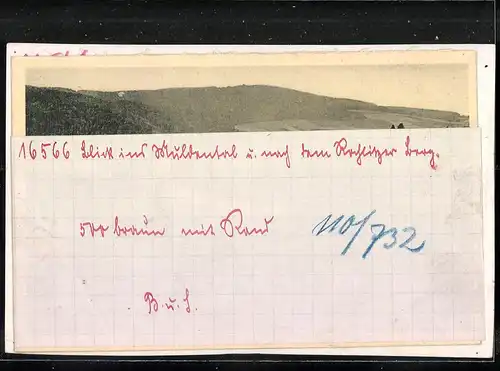 16566 Blick ins Muldental u. nach dem Rochlitzer Berg.
500 braun mit Rand
110/732
B. u. L.